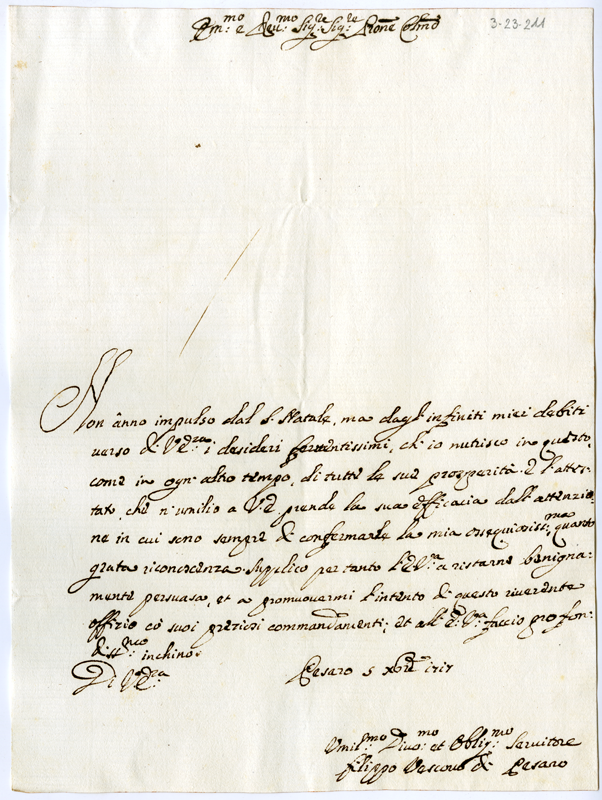 Em:mo e Reu:mo Sig:re Sig:re Prone Colmo
3-23-211
Non ànno impulso dal S. Natale, ma dagl'infiniti miei debiti
uerso di V. Em:za i desideri feruentissimi, ch'io nutrisco in questo,
come in ogn'altro tempo, di tutte le sue prosperità. E l'attes-
tato, che n'umilio a V. E. prende la sua efficacia dall'attenzio-
ne in cui sono sempre di confermarle la mia ossequiosiss:ma quanto
grata riconoscenza. Supplico per tanto l'E. V:ra a restarne benigna-
mente persuasa, et a promouermi l'intento di questo riuerente
offizio co' suoi preziosi commandamenti; et all'E. V:ra faccio profon-
diss:mo inchino.
Di V. Em:za
Pesaro 5 Xbre 1717
Umil:mo Diuo:mo et Oblig:mo Seruitore
Filippo Vescouo di Pesaro